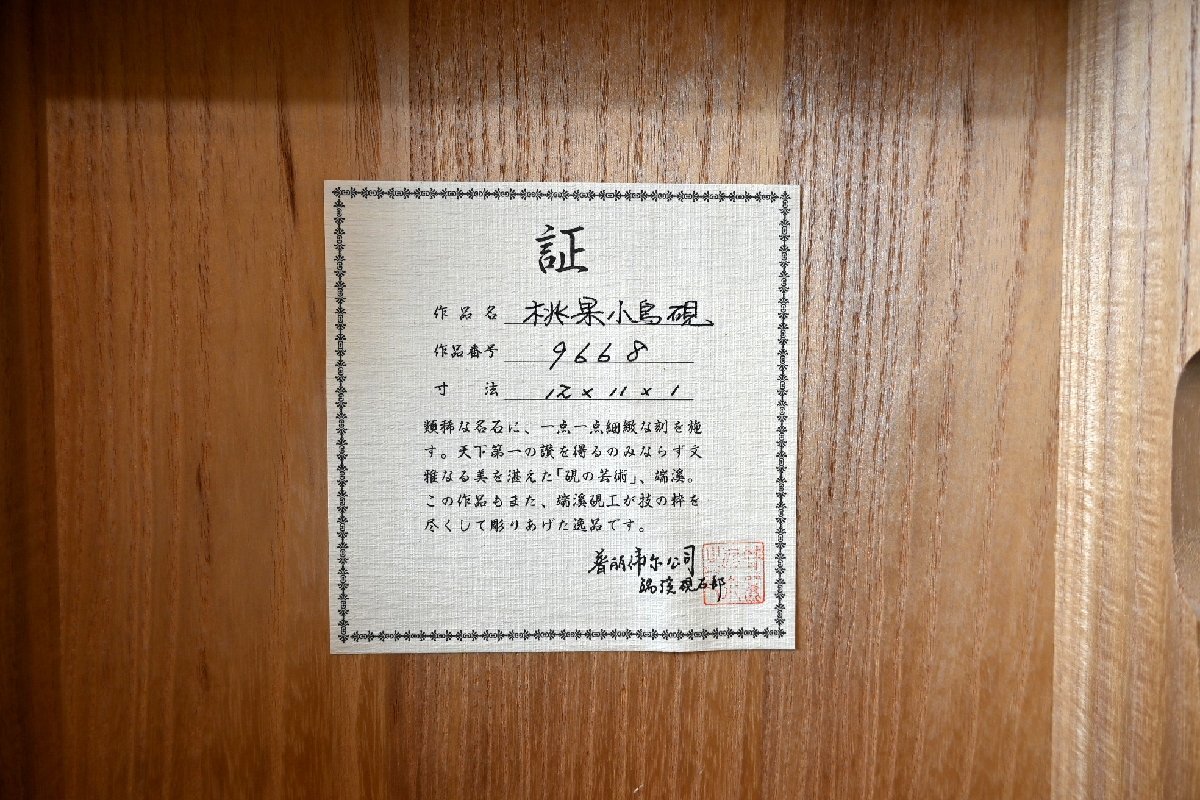 証
作品名 桃果小鳥硯
作品番号 9668
寸法 12×11×1
類稀な名石に、一点一点細緻な刻を施
す。天下第一の讃を得るのみならず文
雅なる美を湛えた「硯の芸術」、端溪。
この作品もまた、端溪硯工が技の粋を
尽くして彫りあげた逸品です。
公司
端溪硯石部